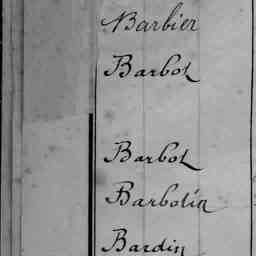 Barbier
Barbot
Barbot
Barbotin
Bardin